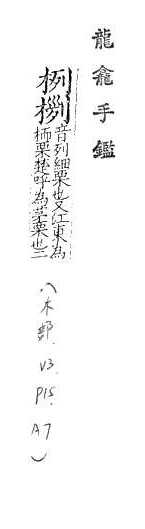 龍龕手鑑
栵㭞音列細栗也又江東為
栭栗楚呼為茅栗也三
(木部. V3. P15. A7)